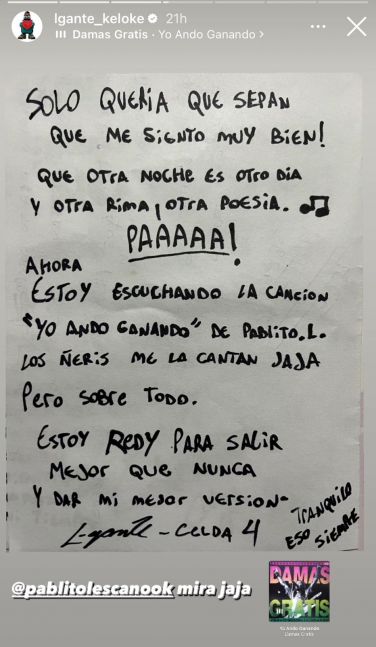 lgante_keloke 21h
Damas Gratis · Yo Ando Ganando >
SOLO QUERIA QUE SEPAN
QUE ME SIENTO MUY BIEN!
QUE OTRA NOCHE ES OTRO DIA
Y OTRA RIMA, OTRA POESIA.
PAAAAA!
AHORA
ESTOY ESCUCHANDO LA CANCION
"YO ANDO GANANDO" DE PABLITO.L.
LOS ÑERIS ME LA CANTAN JAJA
PERO SOBRE TODO.
ESTOY REDY PARA SALIR
MEJOR QUE NUNCA
Y DAR MI MEJOR VERSION-
L-gante - CELDA 4
TRANQUILO
ESO SIEMPRE
@pablitolescanook mira jaja
DAMAS
GRATIS
Yo Ando Ganando
Damas Gratis